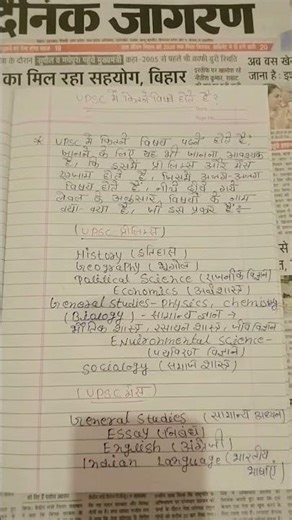 दैनिक जागरण
का मिल रहा सहयोग, बिहार
अब बस खे
जाना है : इप
UPSC में कितने विषय होते है?
* UPSC में कितने विषय पढ़ने होते है?
जानने के लिए यह भी जानना आवश्यक
है, कि इसमें प्रीलिम्स और मेंस
एग्जाम होते है, जिसमें अलग-अलग
विषय होते है, नीचे दिये गये
लेवल के अनुसार विषयों के नाम
क्या-क्या है, जो इस प्रकार है:-
(UPSC प्रीलिम्स)
History (इतिहास)
Geography (भूगोल)
Political Science (राजनीतिक विज्ञान)
Economics (अर्थशास्त्र)
General Studies - Physics, Chemistry
(Biology) - सामान्य ज्ञान →
भौतिक शास्त्र, रसायन शास्त्र, जीव विज्ञान
Environmental Science-
(पर्यावरण विज्ञान)
Sociology (समाज शास्त्र)
(UPSC मेंस)
General Studies (सामान्य अध्ययन)
Essay (निबंध)
English (अंग्रेजी)
Indian Language (भारतीय
भाषाएं)